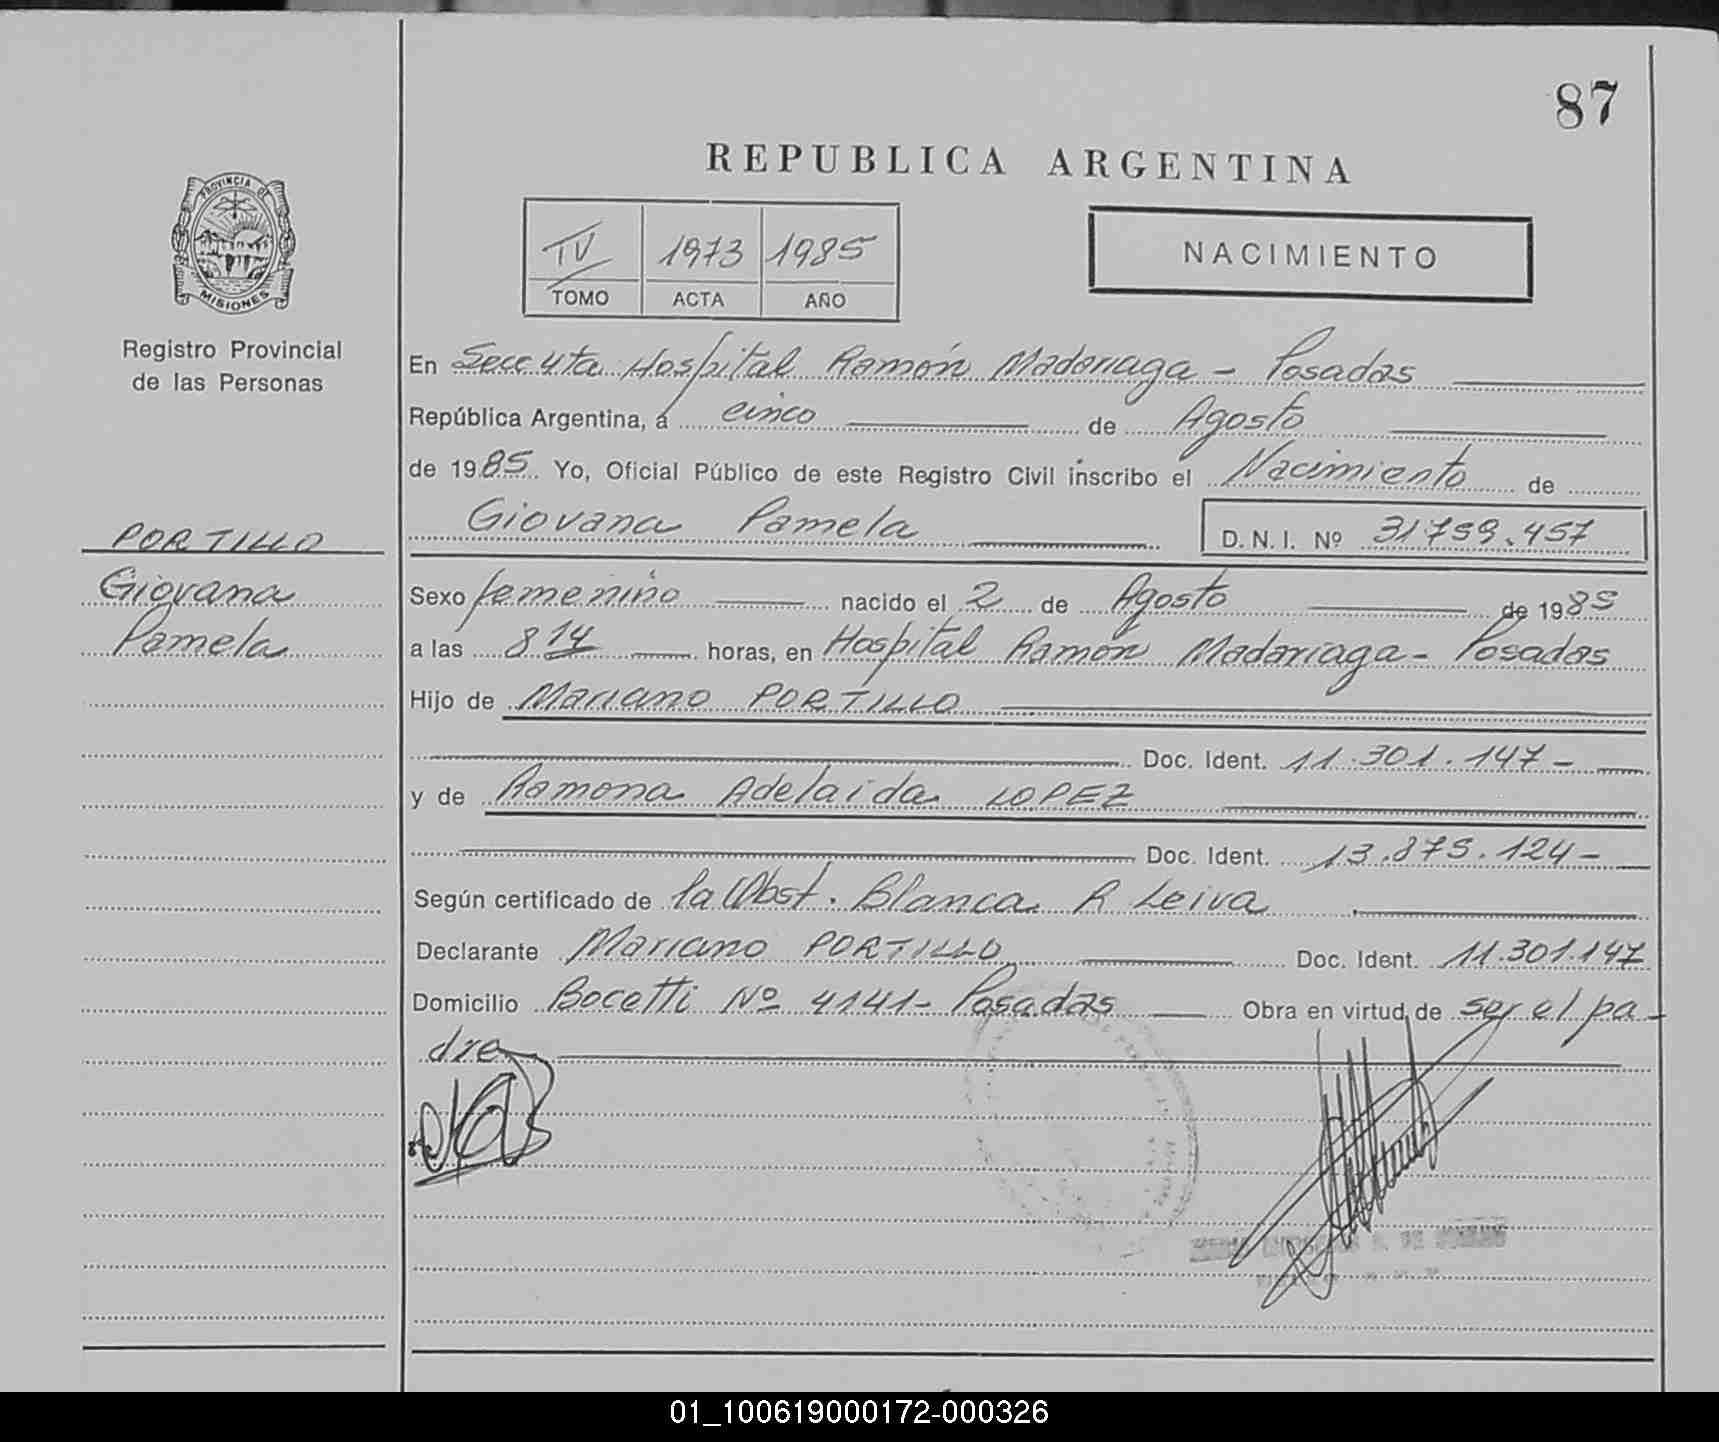 87
REPUBLICA ARGENTINA
PROVINCIA DE
MISIONES
Registro Provincial
de las Personas
IV 1973 1985
TOMO ACTA AÑO
NACIMIENTO
En Secc 4ta Hospital Ramón Madariaga - Posadas
República Argentina, a cinco de Agosto
de 1985 Yo, Oficial Público de este Registro Civil inscribo el Nacimiento de
Giovana Pamela D. N. I. Nº 31.759.457
PORTILLO
Giovana
Pamela
Sexo femenino nacido el 2 de Agosto de 1985
a las 8 14 horas, en Hospital Ramón Madariaga - Posadas
Hijo de Mariano PORTILLO
Doc. Ident. 11.301.147 -
y de Ramona Adelaida LOPEZ
Doc. Ident. 13.875.124 -
Según certificado de la Obst. Blanca R Leiva
Declarante Mariano PORTILLO Doc. Ident. 11.301.147
Domicilio Bocetti Nº 4141 - Posadas Obra en virtud de ser el pa-
dre
01_100619000172-000326